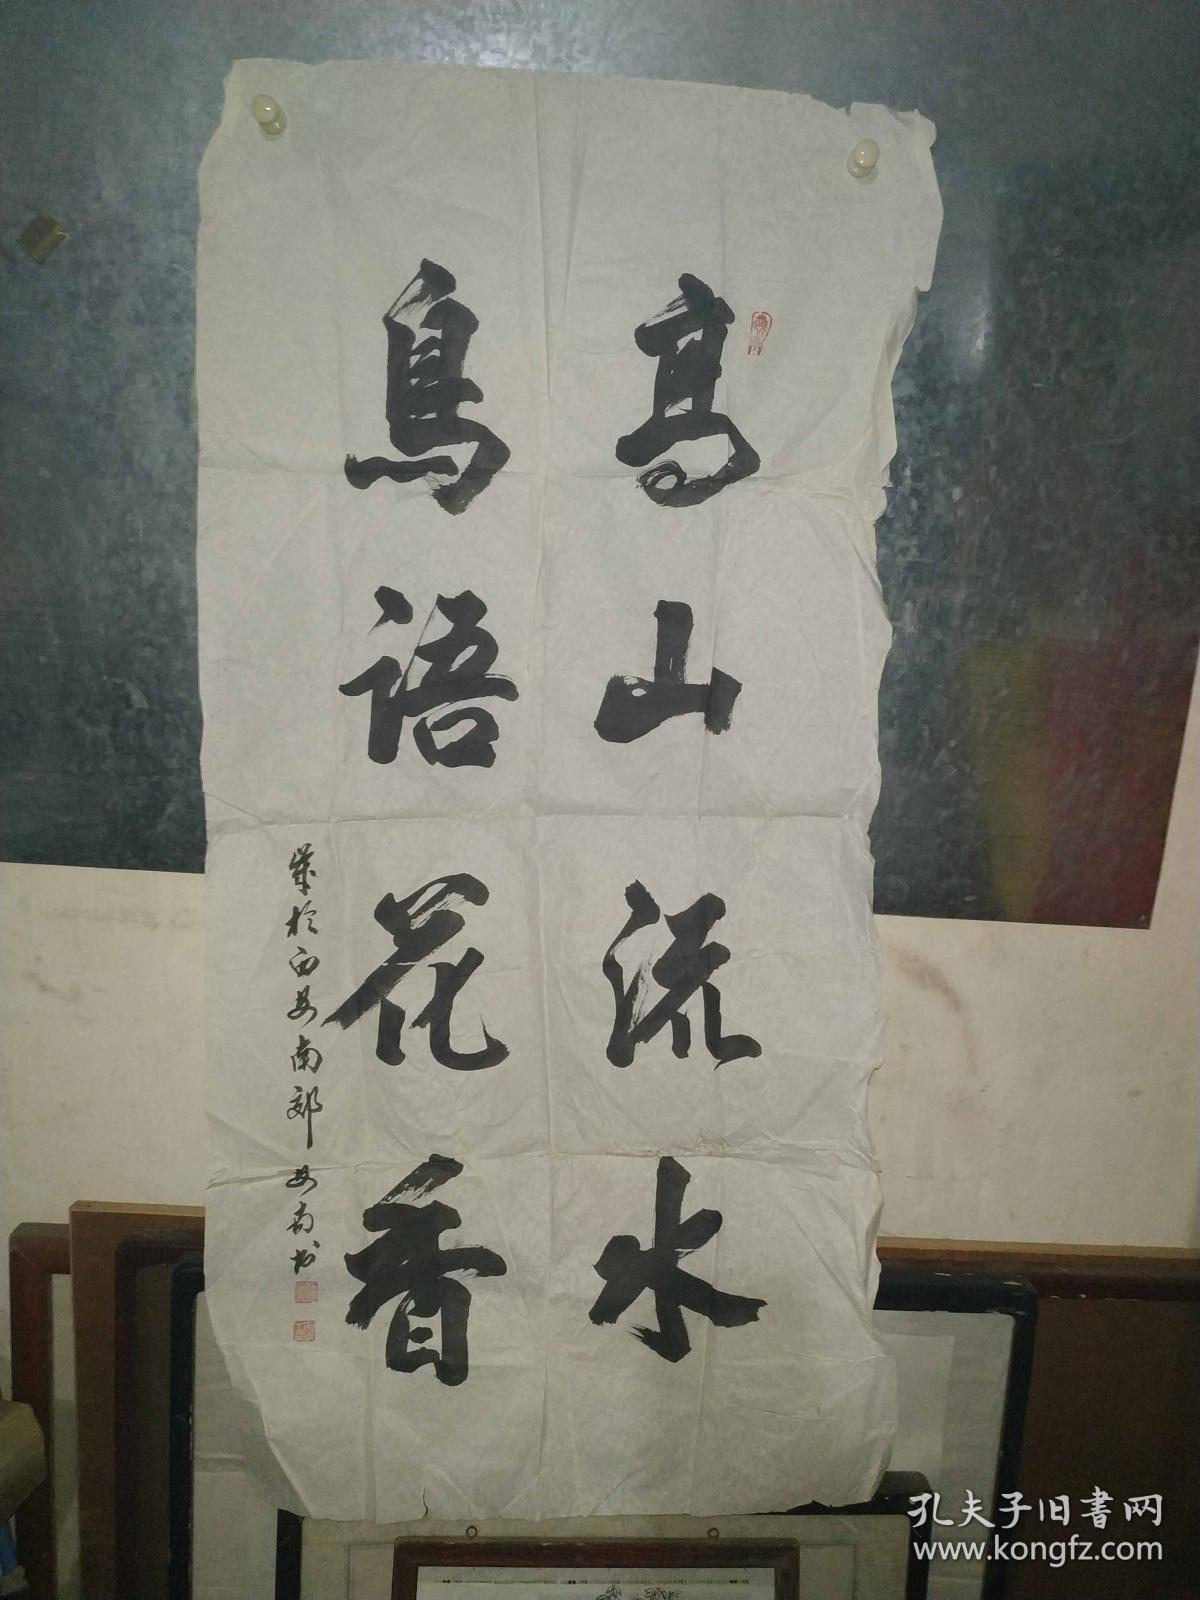 高山流水
鸟語花香
岁於西安南郊安南书
孔夫子旧書网
www.kongfz.com